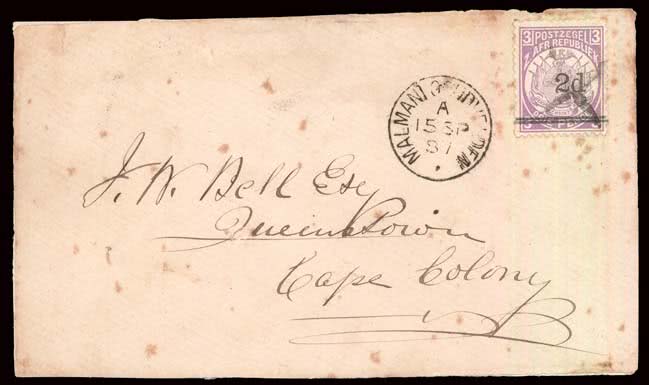 3 POSTZEGEL 3
AFR REPUBLIEK
2d
MALMANI GOUDVELDEN
A
15 SP
87
J. W. Bell Esq
Queenstown
Cape Colony